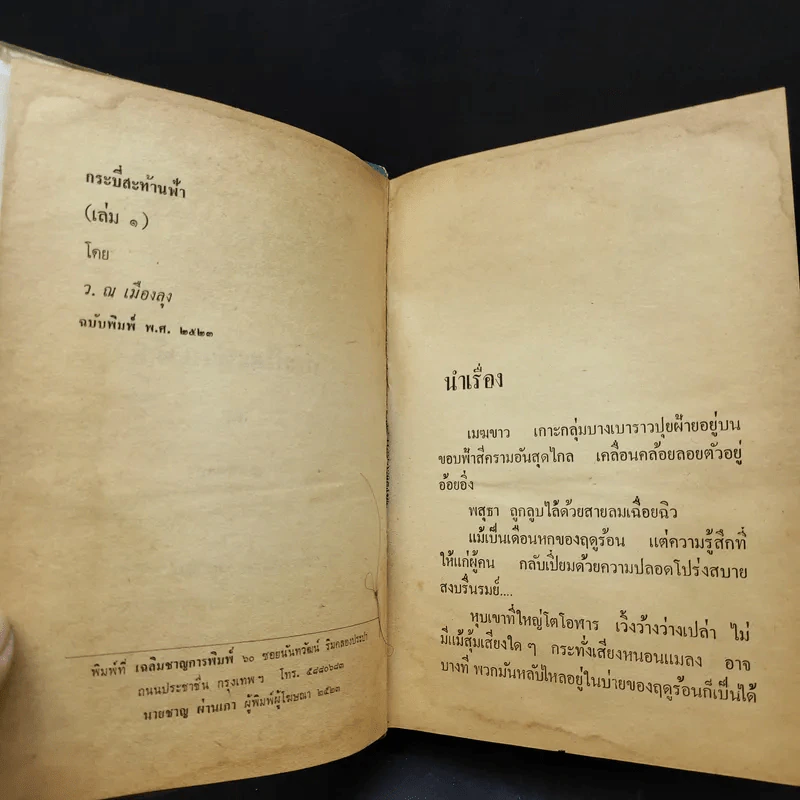 กระบี่สะท้านฟ้า
(เล่ม ๑)
โดย
ว. ณ เมืองลุง
ฉบับพิมพ์ พ.ศ. ๒๕๒๓
พิมพ์ที่ เฉลิมชาญการพิมพ์ ๖๐ ซอยนันทวัฒน์ ริมคลองประปา
ถนนประชาชื่น กรุงเทพฯ โทร. ๕๘๘๐๖๘๓
นายชาญ ผ่านเภา ผู้พิมพ์ผู้โฆษณา ๒๕๒๓
นำเรื่อง
เมฆขาว เกาะกลุ่มบางเบาราวปุยฝ้ายอยู่บน
ขอบฟ้าสีครามอันสุดไกล เคลื่อนคล้อยลอยตัวอยู่
อ้อยอิ่ง
พสุธา ถูกลูบไล้ด้วยสายลมเฉื่อยฉิว
แม้เป็นเดือนหกของฤดูร้อน แต่ความรู้สึกที่
ให้แก่ผู้คน กลับเปี่ยมด้วยความปลอดโปร่งสบาย
สงบรื่นรมย์....
หุบเขาที่ใหญ่โตโอฬาร เวิ้งว้างว่างเปล่า ไม่
มีแม้สุ้มเสียงใด ๆ กระทั่งเสียงหนอนแมลง อาจ
บางที่ พวกมันหลับไหลอยู่ในบ่ายของฤดูร้อนก็เป็นได้